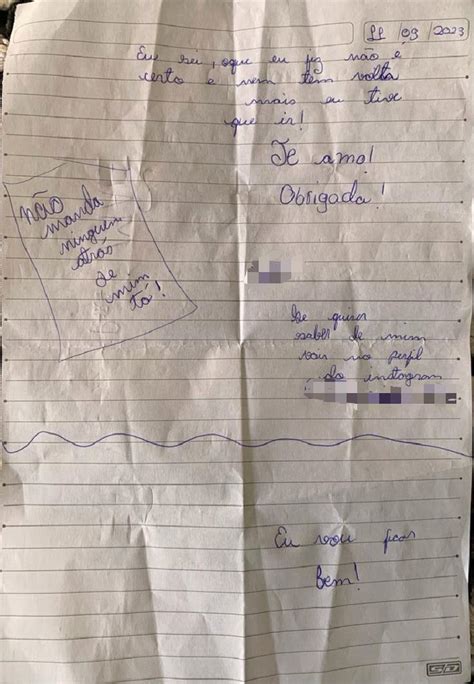 11 / 03 / 2023
Eu sei, oque eu fiz não é
certo e nem tem volta
mais eu tive
que ir!
Te amo!
Obrigada!
não
manda
ninguem
atrás
de
mim
tá!
Se quiser
saber de mim
vai no perfil
do instagram
Eu vou ficar
Bem!